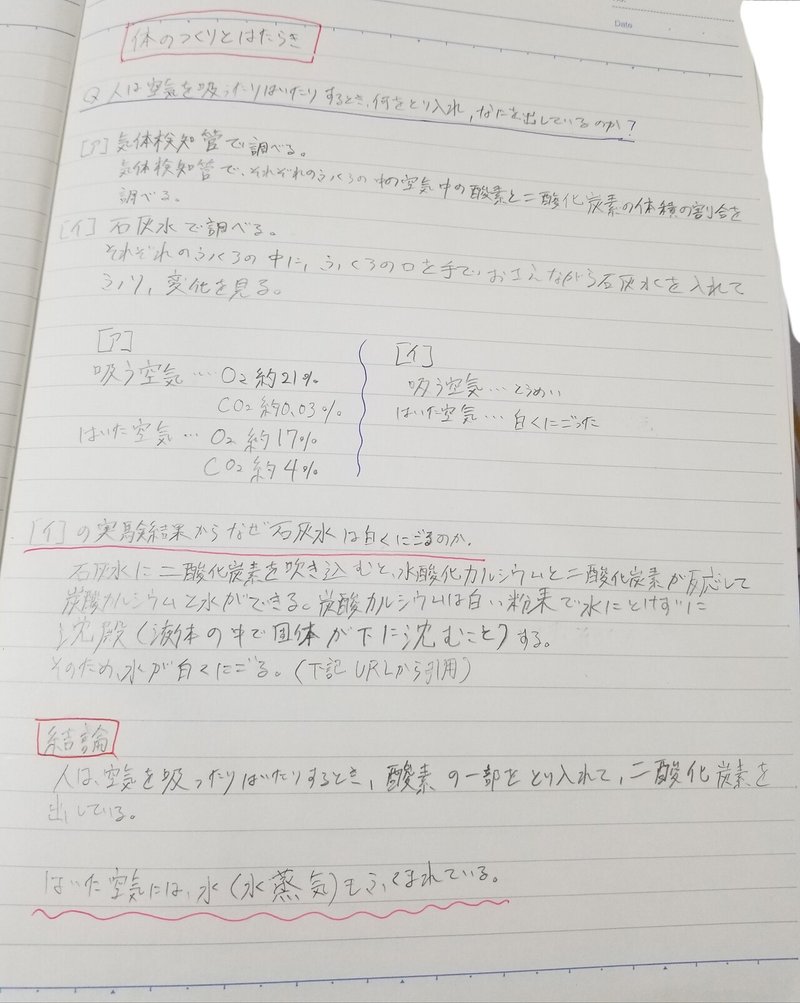 Date
体のつくりとはたらき
Q 人は空気を吸うたりはいたりするとき、何をとり入れ、なにを出しているのか?
[ア] 気体検知管で調べる。
気体検知管で、それぞれのふくろの中の空気中の酸素と二酸化炭素の体積の割合を
調べる。
[イ] 石灰水で調べる。
それぞれのふくろの中に、ふくろの口を手でおさえながら石灰水を入れて
ふり、変化を見る。
[ア]
吸う空気…O2 約21%
CO2 約0.03%
はいた空気…O2 約17%
CO2 約4%
[イ]
吸う空気…とうめい
はいた空気…白くにごった
[イ]の実験結果からなぜ石灰水は白くにごるのか.
石灰水に二酸化炭素を吹き込むと、水酸化カルシウムと二酸化炭素が反応して
炭酸カルシウムと水ができる。炭酸カルシウムは白い粉末で水にとけずに
沈殿(液体の中で固体が下に沈むこと)する。
そのため、水が白くにごる。(下記URLから引用)
結論
人は、空気を吸ったりはいたりするとき、酸素の一部をとり入れて、二酸化炭素を
出している。
はいた空気には、水(水蒸気)もふくまれている。